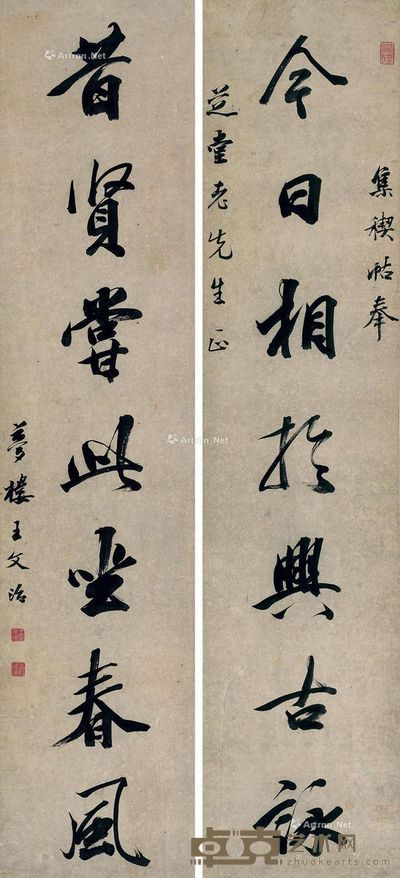 集禊帖奉
今日相於興古詠
芝堂老先生正
昔賢嘗此坐春風
夢樓王文治
Artron.Net
Artron.Net
Artron.Net
Artron.Net
Artron.Net
卓克艺术网
zhuokearts.com